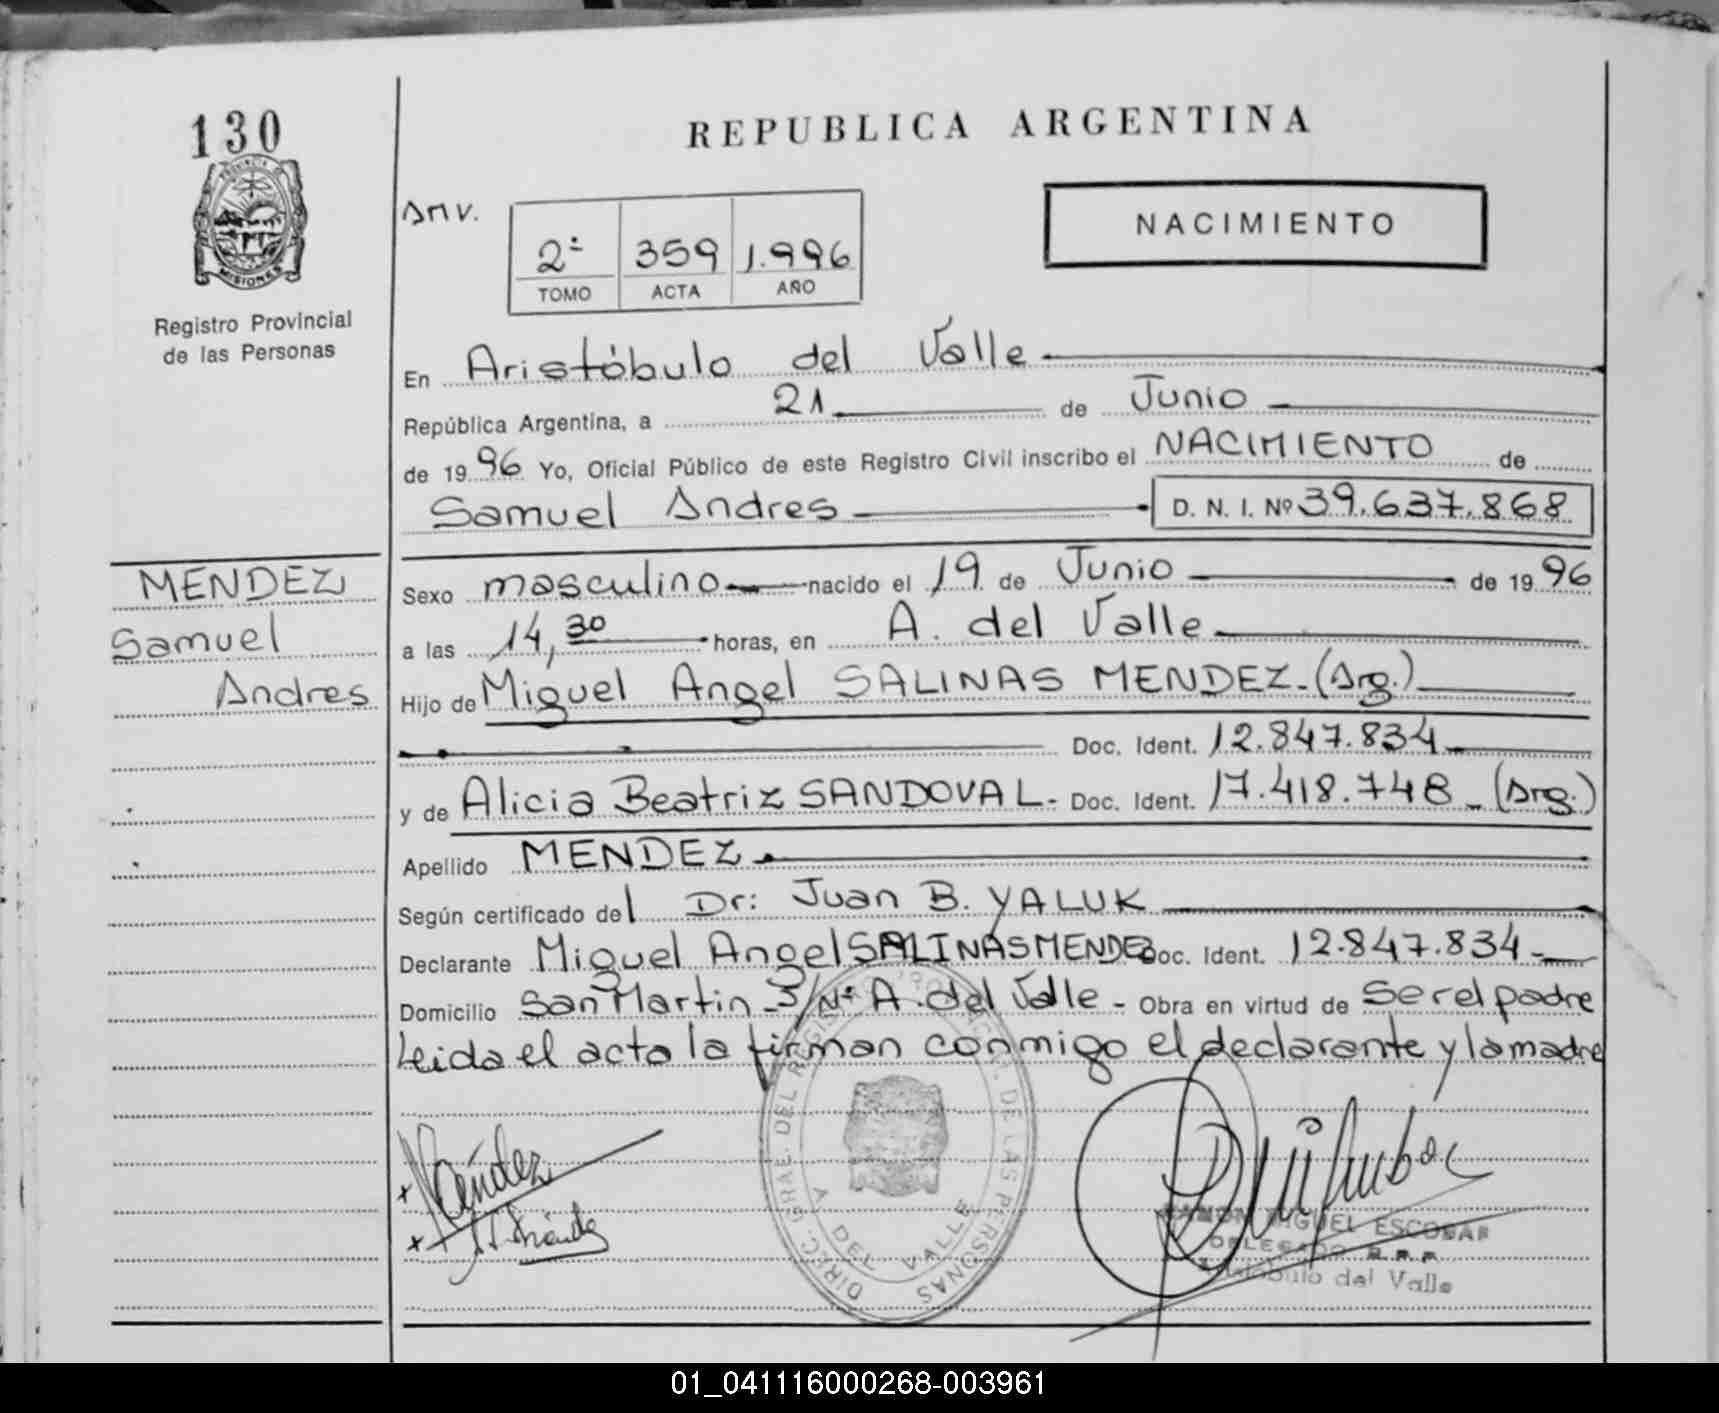 130
PROVINCIA DE
MISIONES
Registro Provincial
de las Personas
REPUBLICA ARGENTINA
AMV.
2º 359 1.996
TOMO ACTA AÑO
NACIMIENTO
En Aristóbulo del Valle
República Argentina, a 21 de Junio
de 1996 Yo, Oficial Público de este Registro Civil inscribo el NACIMIENTO de
Samuel Andres D. N. I. Nº 39.637.868
MENDEZ
Samuel
Andres
Sexo masculino nacido el 19 de Junio de 1996
a las 14,30 horas, en A. del Valle
Hijo de Miguel Angel SALINAS MENDEZ.(Arg.)
Doc. Ident. 12.847.834
y de Alicia Beatriz SANDOVAL- Doc. Ident. 17.418.748 - (Arg.)
Apellido MENDEZ
Según certificado del Dr: Juan B. YALUK
Declarante Miguel Angel SALINAS MENDEZ Doc. Ident. 12.847.834-
Domicilio San Martin - S/Nº A. del Valle - Obra en virtud de Ser el padre
Leida el acta la firman conmigo el declarante y la madre
DIREC. GRAL. DEL REGISTRO PROVINCIAL DE LAS PERSONAS
A DEL VALLE
x Méndez
x
RAMON MIGUEL ESCOBAR
DELEGADO R.P.P.
Aristóbulo del Valle
01_041116000268-003961